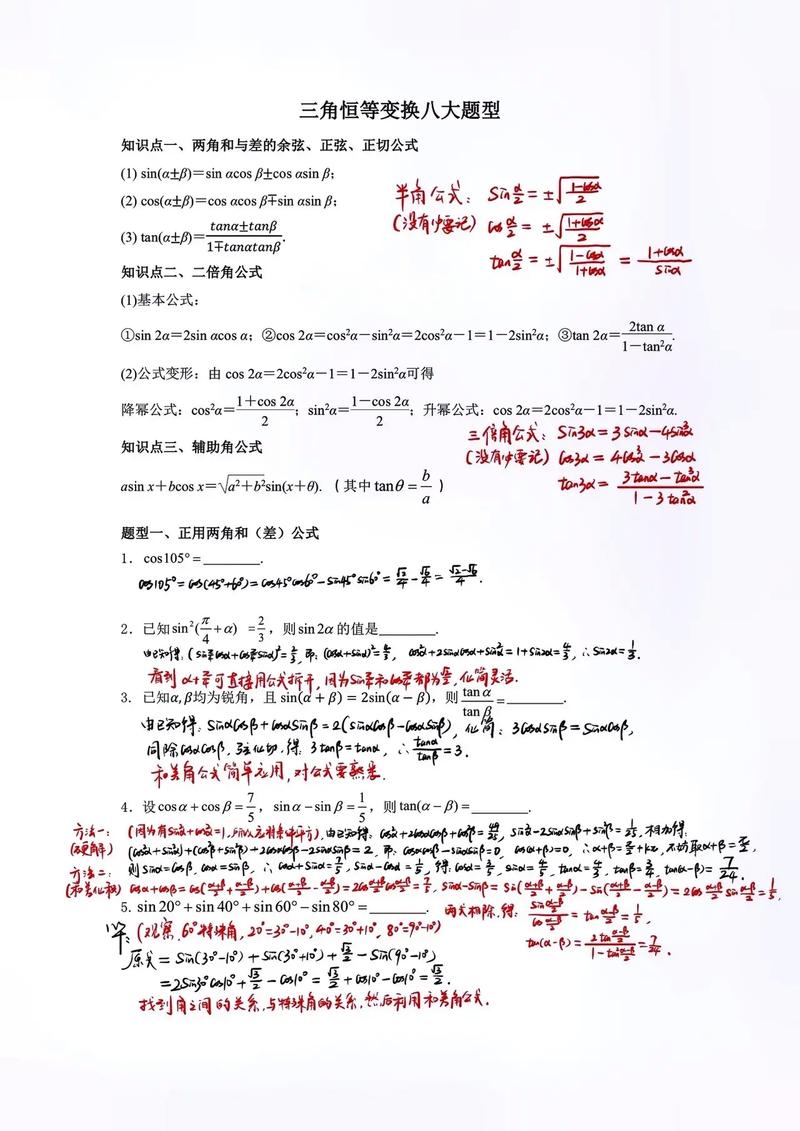 三角恒等变换八大题型
知识点一、两角和与差的余弦、正弦、正切公式
(1) sin(α±β)=sin αcos β±cos αsin β;
(2) cos(α±β)=cos αcos β∓sin αsin β;
(3) tan(α±β)=\frac{tanα±tanβ}{1∓tanαtanβ}.
半角公式: sin\frac{α}{2} = ±\sqrt{\frac{1-cosα}{2}}
(没有必要记) cos\frac{α}{2} = ±\sqrt{\frac{1+cosα}{2}}
tan\frac{α}{2} = ±\sqrt{\frac{1-cosα}{1+cosα}} = \frac{1+cosα}{sinα}
知识点二、二倍角公式
(1)基本公式:
①sin 2α=2sin αcos α; ②cos 2α=cos²α-sin²α=2cos²α-1=1-2sin²α; ③tan 2α=\frac{2tan α}{1-tan²α}.
(2)公式变形: 由 cos 2α=2cos²α-1=1-2sin²α可得
降幂公式: cos²α=\frac{1+cos 2α}{2}; sin²α=\frac{1-cos 2α}{2}; 升幂公式: cos 2α=2cos²α-1=1-2sin²α.
知识点三、辅助角公式
asin x+bcos x=\sqrt{a²+b²}sin(x+θ). (其中 tanθ=\frac{b}{a})
三倍角公式: sin3α = 3sinα-4sin³α
(没有必要记) cos3α = 4cos³α-3cosα
tan3α = \frac{3tanα-tan³α}{1-3tan²α}
题型一、正用两角和(差)公式
1. cos105°=________.
cos105°=cos(45°+60°)=cos45°cos60°-sin45°sin60°=\frac{√2}{4}-\frac{√6}{4}=\frac{√2-√6}{4}.
2. 已知sin²(\frac{π}{4}+α) =\frac{2}{3}, 则sin2α的值是_______.
由已知得: (sin\frac{π}{4}cosα+cos\frac{π}{4}sinα)²=\frac{2}{3}, 即: (cosα+sinα)²=\frac{4}{3}, cos²α+2sinαcosα+sin²α=1+sin2α=\frac{4}{3}, ∴sin2α=\frac{1}{3}.
看到α+\frac{π}{4}可直接用公式拆开, 因为sin\frac{π}{4}和cos\frac{π}{4}都为\frac{√2}{2}, 化简灵活.
3. 已知α,β均为锐角, 且 sin(α+β)=2sin(α-β), 则\frac{tan α}{tan β}=________.
由已知得: sinαcosβ+cosαsinβ=2(sinαcosβ-cosαsinβ), 化简: 3cosαsinβ=sinαcosβ,
同除cosαcosβ, 弦化切, 得: 3tanβ=tanα, ∴\frac{tanα}{tanβ}=3.
和差角公式简单应用, 对公式要熟悉.
4. 设cosα+cosβ=\frac{7}{5}, sinα-sinβ=\frac{1}{5}, 则tan(α-β)=________.
方法一: (因为有sin²α+cos²α=1, 所以想到条件平方), 由已知得: cos²α+2cosαcosβ+cos²β=\frac{49}{25}, sin²α-2sinαsinβ+sin²β=\frac{1}{25}, 相加得:
(硬解) (cos²α+sin²α)+(cos²β+sin²β)+2cosαcosβ-2sinαsinβ=2, 即: cosαcosβ-sinαsinβ=0, cos(α+β)=0, ∴α+β=\frac{π}{2}+kπ, 不妨取α+β=\frac{π}{2},
则sinα=cosβ, cosα=sinβ, ∴cosα+sinα=\frac{7}{5}, sinα-cosα=\frac{1}{5}, 得: cosα=\frac{3}{5}, sinα=\frac{4}{5}, tanα=\frac{4}{3}, tanβ=\frac{3}{4}, tan(α-β)=\frac{7}{24}.
方法二:
(和差化积) cosα+cosβ=cos(\frac{α+β}{2}+\frac{α-β}{2})+cos(\frac{α+β}{2}-\frac{α-β}{2})=2cos\frac{α+β}{2}cos\frac{α-β}{2}=\frac{7}{5}, sinα-sinβ=sin(\frac{α+β}{2}+\frac{α-β}{2})-sin(\frac{α+β}{2}-\frac{α-β}{2})=2cos\frac{α+β}{2}sin\frac{α-β}{2}=\frac{1}{5},
两式相除, 得: \frac{sin\frac{α-β}{2}}{cos\frac{α-β}{2}}=tan\frac{α-β}{2}=\frac{1}{7},
tan(α-β)=\frac{2tan\frac{α-β}{2}}{1-tan²\frac{α-β}{2}}=\frac{7}{24}.
5. sin20°+sin40°+sin60°-sin80°=_______.
解: (观察, 60°特殊角, 20°=30°-10°, 40°=30°+10°, 80°=90°-10°)
原式=sin(30°-10°)+sin(30°+10°)+\frac{√3}{2}-sin(90°-10°)
=2sin30°cos10°+\frac{√3}{2}-cos10°=\frac{√3}{2}+cos10°-cos10°=\frac{√3}{2}.
找到角之间的关系, 与特殊角的关系, 然后利用和差角公式.